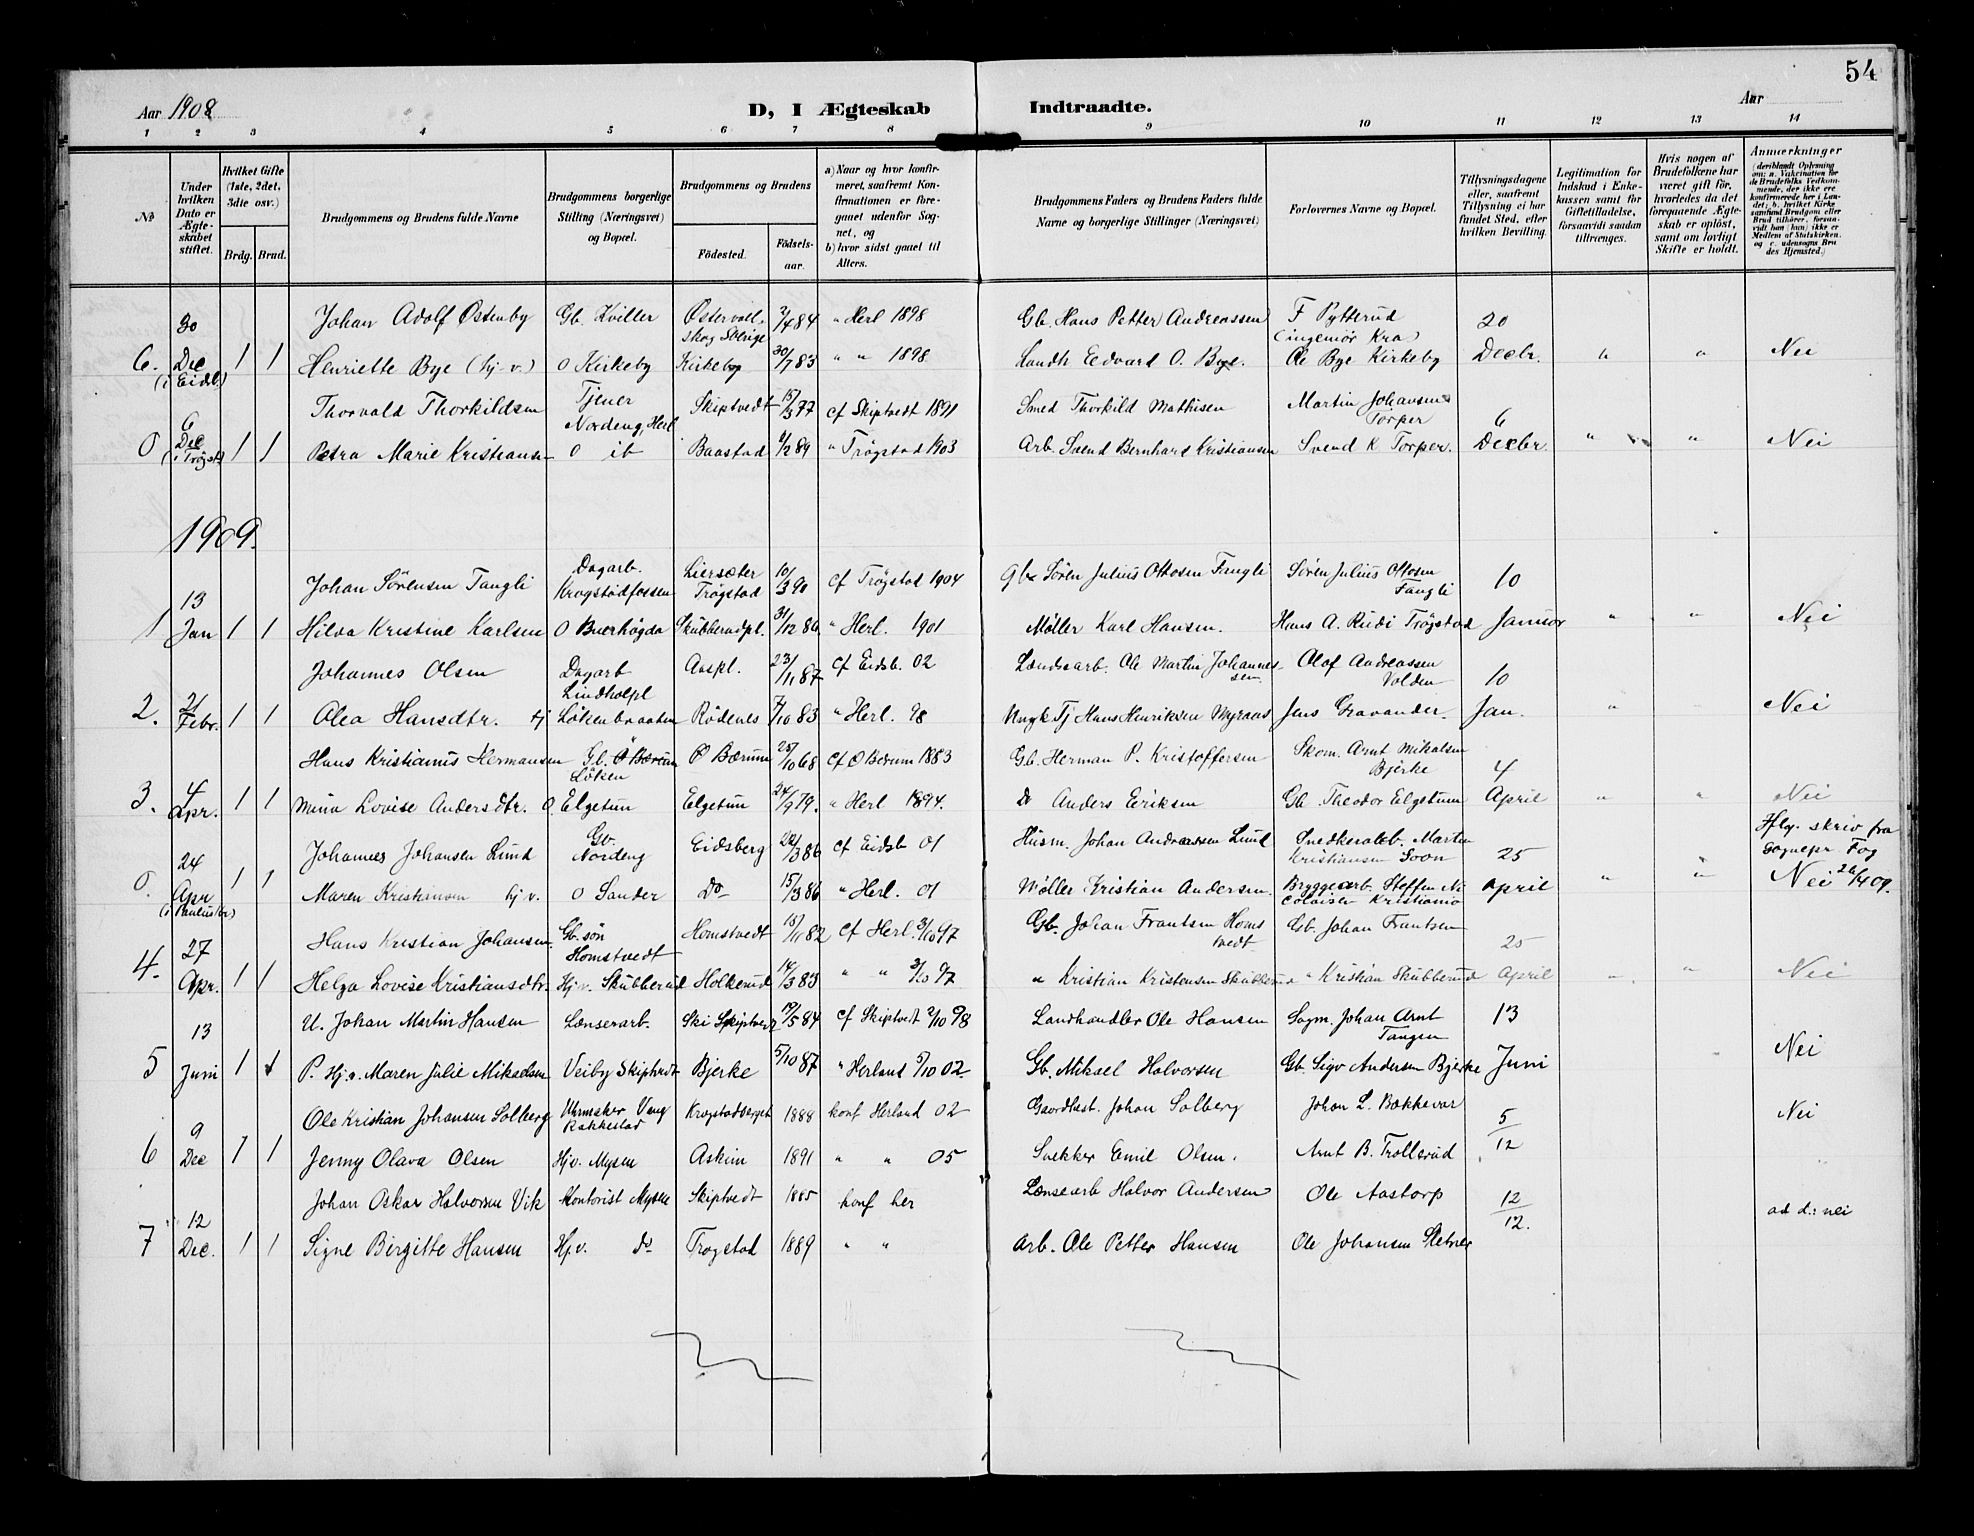 54
Aar 1908
D, I Ægteskab Indtraadte.
Aar
1 2 3 4 5 6 7 8 9 10 11 12 13 14
No
Under hvilken Dato er Ægteskabet stiftet.
Hvilket Gifte (1ste, 2det, 3die osv.)
Brdg. Brud.
Brudgommens og Brudens fulde Navne
Brudgommens borgerlige Stilling (Næringsvei) og Bopæl.
Brudgommens og Brudens
Födested. Födsels-aar.
a) Naar og hvor konfirmeret, saafremt Konfirmationen er foregaaet udenfor Sognet, og
b) hvor sidst gaaet til Alters.
Brudgommens Faders og Brudens Faders fulde Navne og borgerlige Stillinger (Næringsvei)
Forlovernes Navne og Bopæl.
Tillysningsdagene eller, saafremt Tillysning ei har fundet Sted, efter hvilken Bevilling.
Legitimation for Indskud i Enkekassen samt for Giftetilladelse, forsaavidt saadan tiltrænges.
Hvis nogen af Brudefolkene har været gift för, hvorledes da det foregaaende Ægteskab er oplöst, samt om lovligt Skifte er holdt.
Anmærkninger
30 Johan Adolf Østenby Gb. Kviller Østervallskog Sverige 2/4 84 " Herl 1898 Gb. Hans Petter Andreassen F Pytterud (ingeniør Kra) 20
6. Dec (i Eidb.) 1 1 Henriette Bye (hj. v.) o Kirkeby Kirkeby 30/7 83 " " 1898 Landh Edvard O. Bye. Ole Bye Kirkeby Decbr. " " Nei
6 Thorvald Thorkildsen Tjener Nordeng, Herl Skiptvedt 15/3 77 cf Skiptvedt 1891 Smed Thorkild Mathisen Martin Johansen Torper 6
0 Dec (i Trøgst) 1 1 Petra Marie Kristiansen o ib Baastad 9/2 89 " Trøgstad 1903 Arb. Svend Bernhard Kristiansen Svend K Torper. Decbr. " " Nei
1909.
13 Johan Sörensen Fangli Dagarb. Krogstadfossen Liersæter Trøgstad 10/3 90 cf Trøgstad 1904 Gbr Sören Julius Ottosen Fangli Sören Julius Ottosen Fangli 10
1 Jan 1 1 Hilda Kristine Karlsen o Buerhögda Skubberudpl. 31/12 86 " Herl. 1901 Møller Karl Hansen. Hans A. Rudi Trøgstad Januar " " Nei
21 Johannes Olsen Dagarb Lindholpl Aaspl. 23/11 87 cf Eidsb. 02 Lændsearb. Ole Martin Johannessen Olof Andreassen Volden 10
2. Febr. 1 1 Olea Hansdtr. tj Løkenbraaten Rödenes 7/10 83 " Herl. 98 Ungk Tj Hans Henriksen Myraas Jens Gravander. Jan. " " Nei
4 Hans Kristianus Hermansen Gb. Ø Bærum Löken Ø Bærum 25/10 68 cf Ø Bærum 1883 Gb. Herman P. Kristoffersen Skom. Arnt Mikalsen Bjerke 4
3. Apr. 1 1 Mina Lovise Andersdtr. o. Elgetun Elgetun 24/9 79. " Herl 1894. Do Anders Eriksen Gb Theodor Elgetun April " " Nei
24 Johannes Johansen Lund Gb. Nordeng Eidsberg 24/3 86 cf Eidsb 01 Husm. Johan Andreassen Lund Snedkerarb. Martin Kristiansen Soon 25 Iflg. skriv fra Sognepr Fog
0. Apr (i Paulus kr) 1 1 Maren Kristiansen hj v. o Sander Do 15/3 86 " Herl. 01 Møller Kristian Andersen. Bryggearb. Steffen Nicolaisen Kristiania April " " Nei 26/4 09.
27 Hans Kristian Johansen Gb. søn Homstvedt Homstvedt 15/11 82 cf Herl. 3/10 97 Gb. Johan Frantsen Homstvedt Gb. Johan Frantsen 25
4. Apr. 1 1 Helga Lovise Kristiansdtr. Hj. v. Skubberud Holkerud 14/3 83 " " 3/10 97 " Kristian Kristensen Skubberud " Kristian Skubberud April " " Nei
13 U. Johan Martin Hansen Lænsearb. Ski Skiptvedt 19/5 84 cf Skiptvedt 2/10 98 Landhandler Ole Hansen Sagm. Johan Arnt Tangen 13
5 Juni 1 1 P. Hj. v. Maren Julie Mikaelsen Veiby Skiptvedt Bjerke 5/10 87 " Herland 5/10 02. Gb. Mikael Halvorsen Gb. Sigv Andersen Bjerke Juni Nei
9 Ole Kristian Johansen Solberg Uhrmaker Veng Rakkestad Krogstadberget 1888 konf Herland 02 Gaardbest. Johan Solberg Johan L. Bakkevar 5 Nei
6 Dec 1 1 Jenny Olava Olsen Hj. v. Mysen Askim 1891 " " 05 Snekker Emil Olsen. Arnt B. Trollerud 12
12 Johan Oskar Halvorsen Vik Kontorist Mysen Skiptvedt 1885 konf her Lænsearb Halvor Andersen Ole Aastorp 12 ad d.: nei
7 Dec. 1 1 Signe Birgitte Hansen Hj. v. Do Trøgstad 1889 " " Arb. Ole Petter Hansen Ole Johansen Sletner 12.